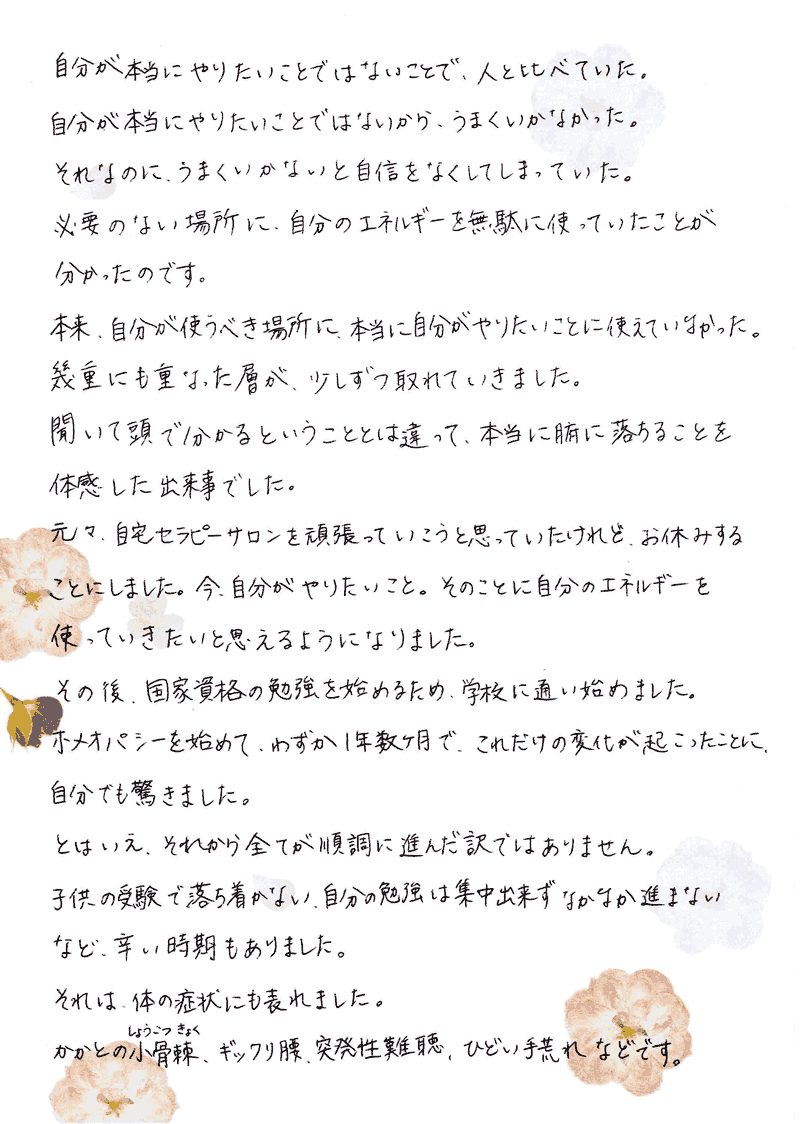 自分が本当にやりたいことではないことで、人と比べていた。
自分が本当にやりたいことではないから、うまくいかなかった。
それなのに、うまくいかないと自信をなくしてしまっていた。
必要のない場所に、自分のエネルギーを無駄に使っていたことが
分かったのです。
本来、自分が使うべき場所に、本当に自分がやりたいことに使えていなかった。
幾重にも重なった層が、少しずつ取れていきました。
聞いて頭で分かるということとは違って、本当に腑に落ちることを
体感した出来事でした。
元々、自宅セラピーサロンを頑張っていこうと思っていたけれど、お休みする
ことにしました。今、自分がやりたいこと。そのことに自分のエネルギーを
使っていきたいと思えるようになりました。
その後、国家資格の勉強を始めるため、学校に通い始めました。
ホメオパシーを始めて、わずか1年数ヶ月で、これだけの変化が起こったことに、
自分でも驚きました。
とはいえ、それから全てが順調に進んだ訳ではありません。
子供の受験で落ち着かない、自分の勉強は集中出来ずなかなか進まない
など、辛い時期もありました。
それは、体の症状にも表れました。
かかとの小骨棘、ギックリ腰、突発性難聴、ひどい手荒れなどです。
しょうこつきょく